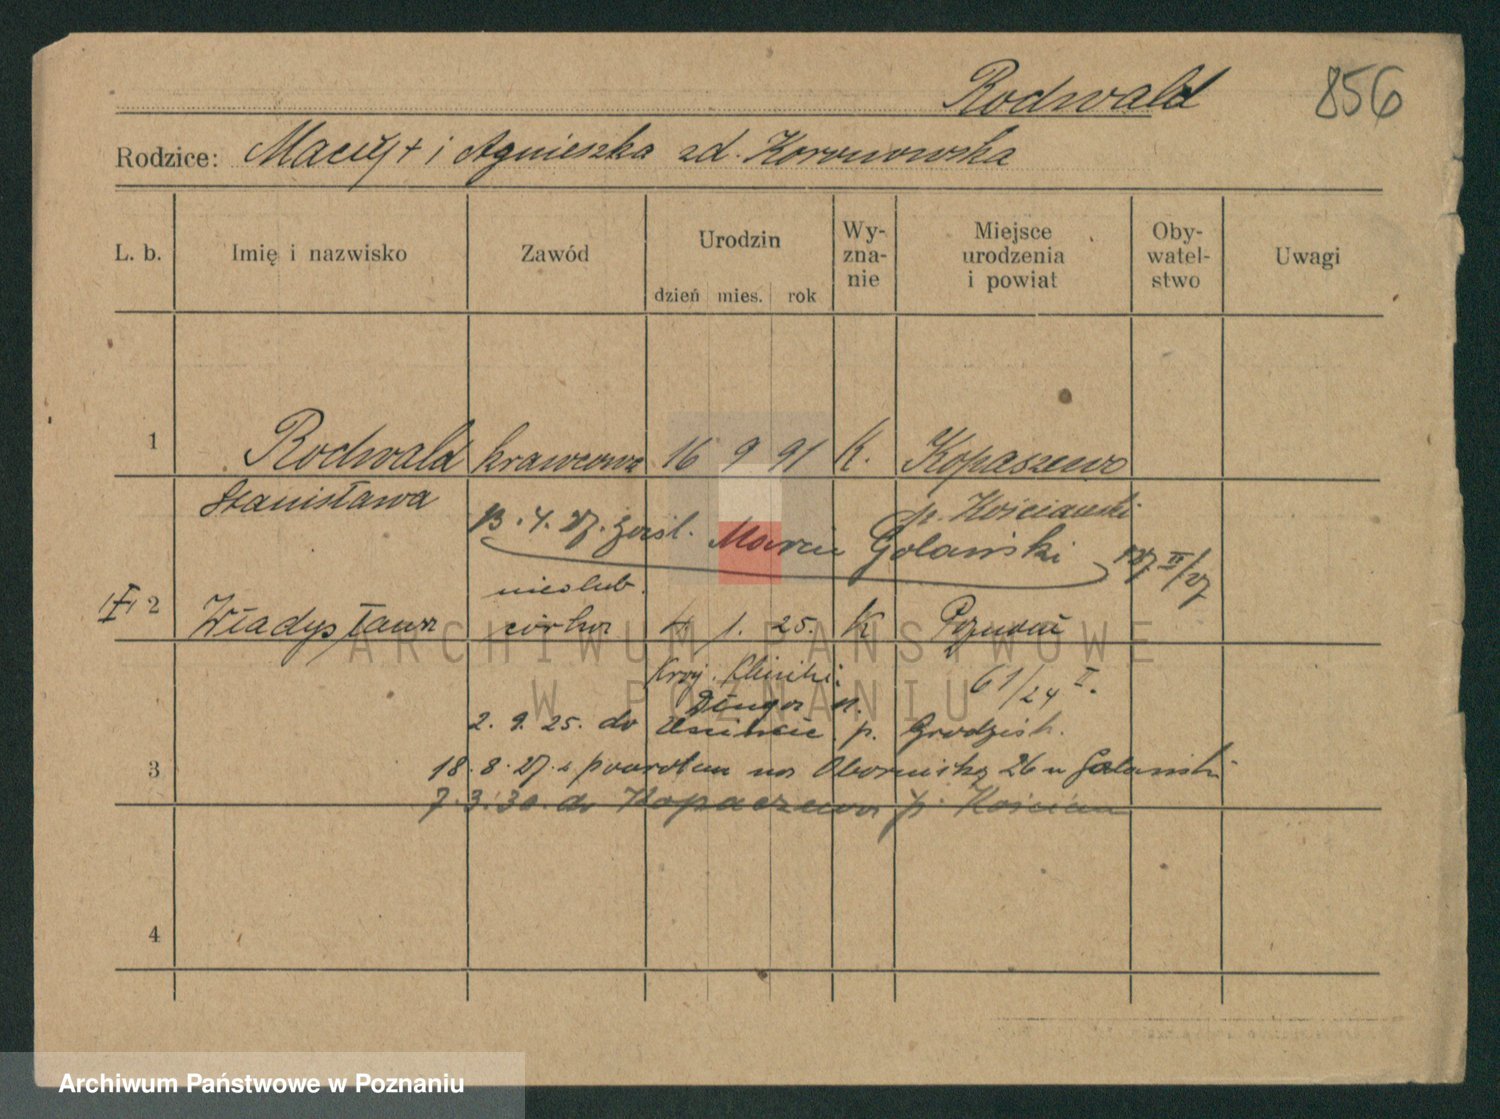 Rodwald 856
Rodzice: Maciej + i Agnieszka zd. Koronowska
L. b. Imię i nazwisko Zawód Urodzin Wy-zna-nie Miejsce urodzenia i powiat Oby-watel-stwo Uwagi
dzień mies. rok
1 Rodwald krawcowa 16 9 91 K. Kopaszewo
Stanisława p. Kościański
13. 4. 27. zaśl. Marcin Golański 127 IV/27
nieślub.
2 Władysława córka 4 1. 25. K Poznań
61/24 I.
Długa
2. 9. 25. do p. Grodzisk.
3 18. 8. 27. z powrotem na Obornicką 26 u Golański
7. 3. 30. do Kopaczewa p. Kościan
4
ARCHIWUM PAŃSTWOWE
W POZNANIU
Archiwum Państwowe w Poznaniu